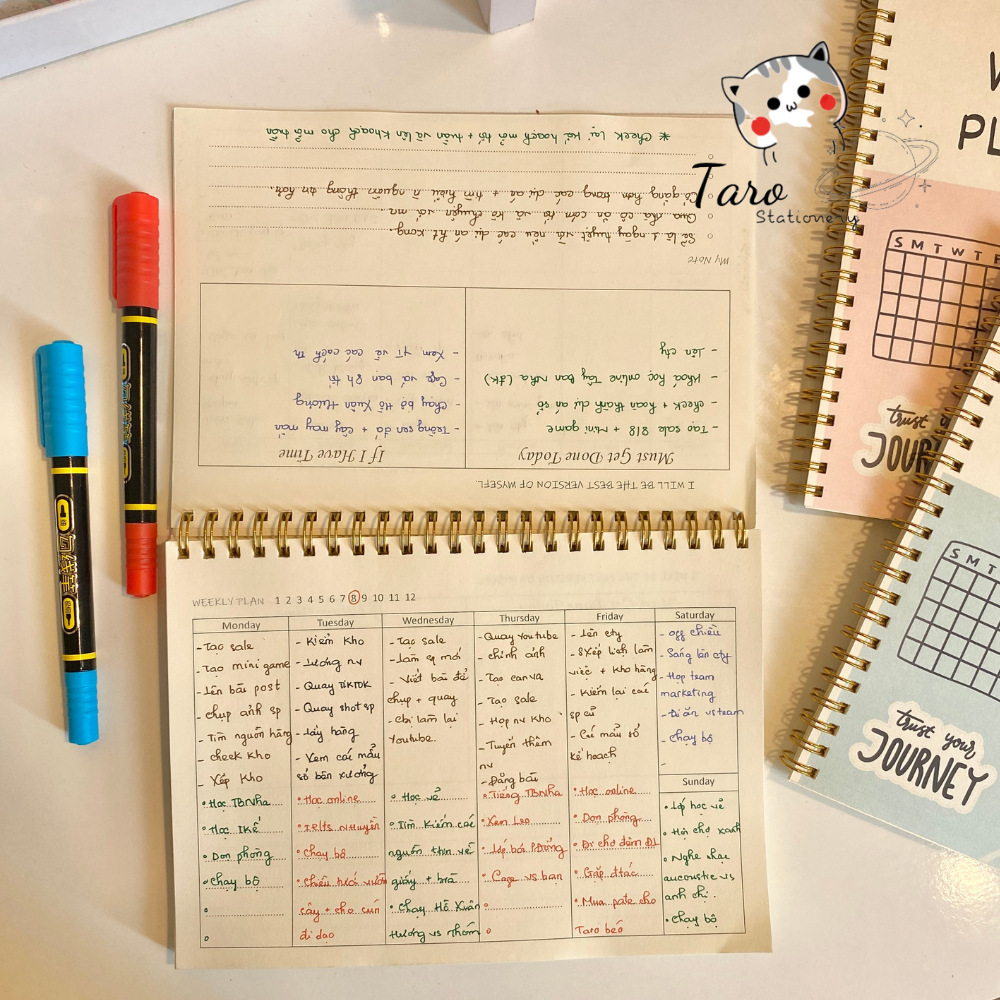 Taro
Stationery
* Check lại kế hoạch mỗi tối + tuần và lên khoạch cho mỗi tuần
Cố gắng hơn trong các dự án + tìm hiểu n nguồn thông tin hơn.
My Note
- Xem YT về các cách
- Cafe vs bạn
- Chạy bộ Hồ Xuân Hương
- Trồng sen đá + cây may mắn
If I Have Time
- Lên cty
- Khoá học online Tây Ban Nha (3k)
- check + hoàn thành dự án số
- Tạo sale 818 + Mini game
Must Get Done Today
I WILL BE THE BEST VERSION OF MYSEFL
WEEKLY PLAN 1 2 3 4 5 6 7 8 9 10 11 12
Monday
- Tạo sale
- Tạo mini game
- Lên bài post
- chụp ảnh sp
- Tìm nguồn hàng
- check kho
- Xếp kho
• Học TBNha
• Học
• Dọn phòng
• Chạy bộ
Tuesday
- Kiểm kho
- Lương nv
- Quay TIKTOK
- Quay shot sp
- Lấy hàng
- Xem các mẫu
số bên xưởng
• Học online
• Ielts Nguyện
• Chạy bộ
• Chiều tưới vườn
cây + cho cún
đi dạo
Wednesday
- Tạo sale
- Làm sp mới
- Viết bài để
chụp + quay
- Chị làm lại
Youtube.
• Học vẽ
• Tìm kiếm các
nguồn thin về
giấy + bìa
• Chạy Hồ Xuân
Hương vs nhóm
Thursday
- Quay Youtube
- chỉnh ảnh
- Tạo canva
- Tạo sale
- Họp nv kho
- Tuyển thêm
nv
- Đăng bài
• Tiếng TBNha
• Xem
• Cafe vs bạn
Friday
- Lên cty
- Xếp lịch làm
việc + kho hàng
- Kiểm lại các
sp cũ
- Các mẫu sổ
kế hoạch
• Học online
• Dọn phòng
• Đi chợ đêm ĐL
• Gặp đtác
• Mua pate cho
Taro béo
Saturday
- off chiều
- Sáng lên cty
- Họp team
marketing
- Đi ăn vs team
- Chạy bộ
-
Sunday
• Lớp học vẽ
• Hội chợ xanh
• Nghe nhạc
aucoustic vs
anh chị.
• Chạy bộ
S M T W T F
trust
JOUR
S M T
trust your
JOURNEY